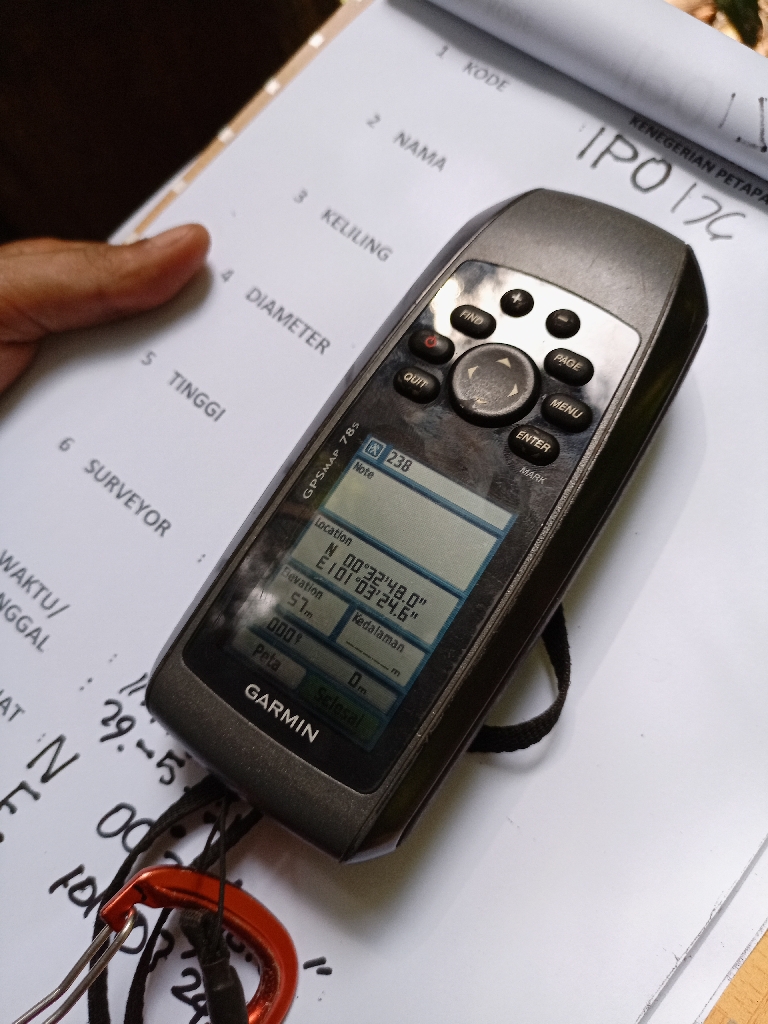 1 KODE
KENEGERIAN PETAPA
IPO 176
2 NAMA
3 KELILING
4 DIAMETER
5 TINGGI
6 SURVEYOR :
WAKTU/
NGGAL :
29.-5.
AT : N
E
00
101
03
24
FIND
+
-
PAGE
QUIT
MENU
ENTER
MARK
GPSMAP 78s
238
Note
Location
N 00°32'48.0"
E101°03'24.6"
Elevation
57m
Kedalaman
_____m
000°t
0m
Peta
Selesai
GARMIN